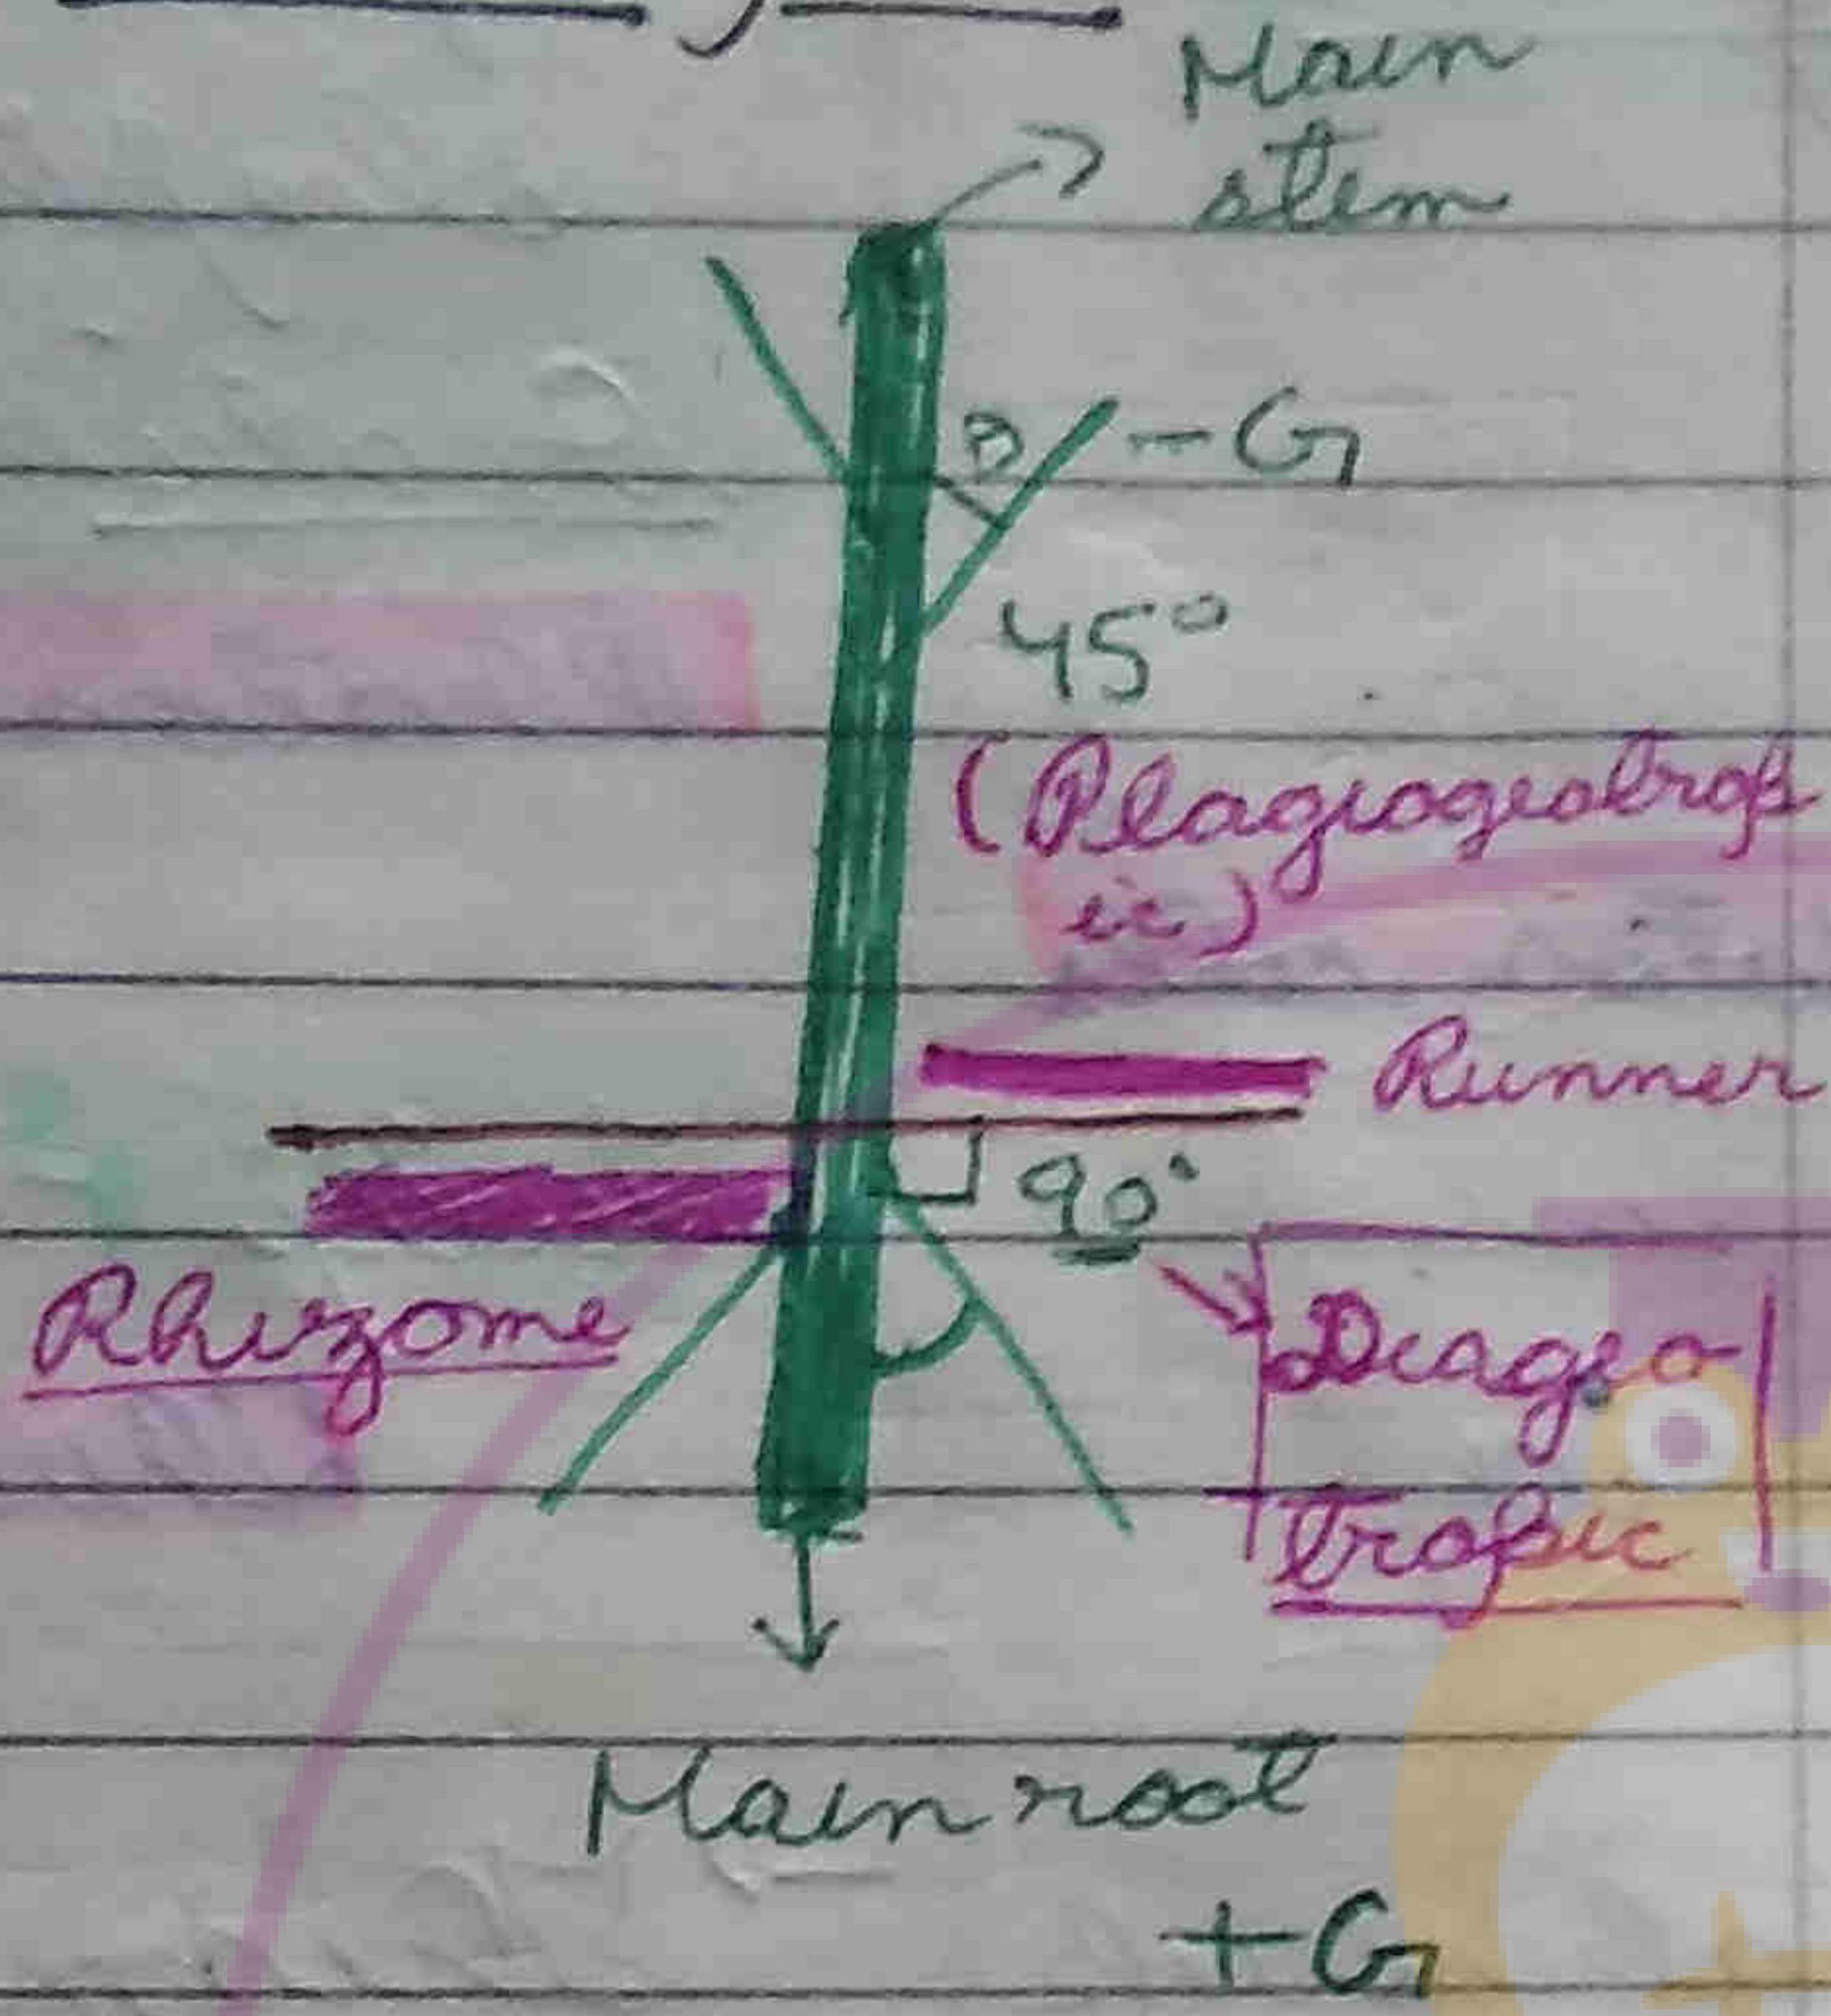 Main
stem
θ
-G
45°
(Plagiogeotrop
ic)
Runner
90°
Rhizome
Diageo
tropic
Main root
+G